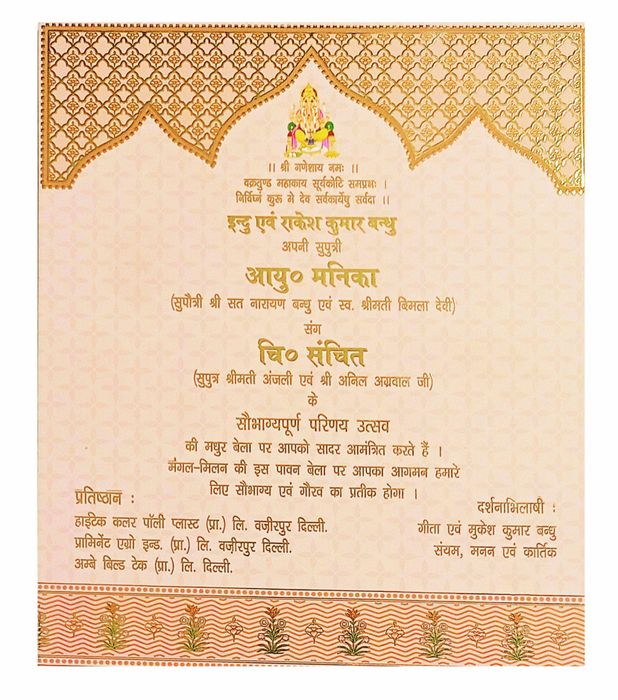 ।। श्री गणेशाय नमः ।।
वक्रतुण्ड महाकाय सूर्यकोटि समप्रभः ।
निर्विघ्नं कुरू मे देव सर्वकार्येषु सर्वदा ।।
इन्दु एवं राकेश कुमार बन्धु
अपनी सुपुत्री
आयु० मनिका
(सुपौत्री श्री सत नारायण बन्धु एवं स्व. श्रीमती बिमला देवी)
संग
चि० संचित
(सुपुत्र श्रीमती अंजली एवं श्री अनिल अग्रवाल जी)
के
सौभाग्यपूर्ण परिणय उत्सव
की मधुर बेला पर आपको सादर आमंत्रित करते हैं ।
मंगल-मिलन की इस पावन बेला पर आपका आगमन हमारे
लिए सौभाग्य एवं गौरव का प्रतीक होगा ।
प्रतिष्ठान :
हाईटेक कलर पॉली प्लास्ट (प्रा.) लि. वज़ीरपुर दिल्ली.
प्रामिनेंट एग्रो इन्ड. (प्रा.) लि. वज़ीरपुर दिल्ली.
अम्बे बिल्ड टेक (प्रा.) लि. दिल्ली.
दर्शनाभिलाषी :
गीता एवं मुकेश कुमार बन्धु
संयम, मनन एवं कार्तिक